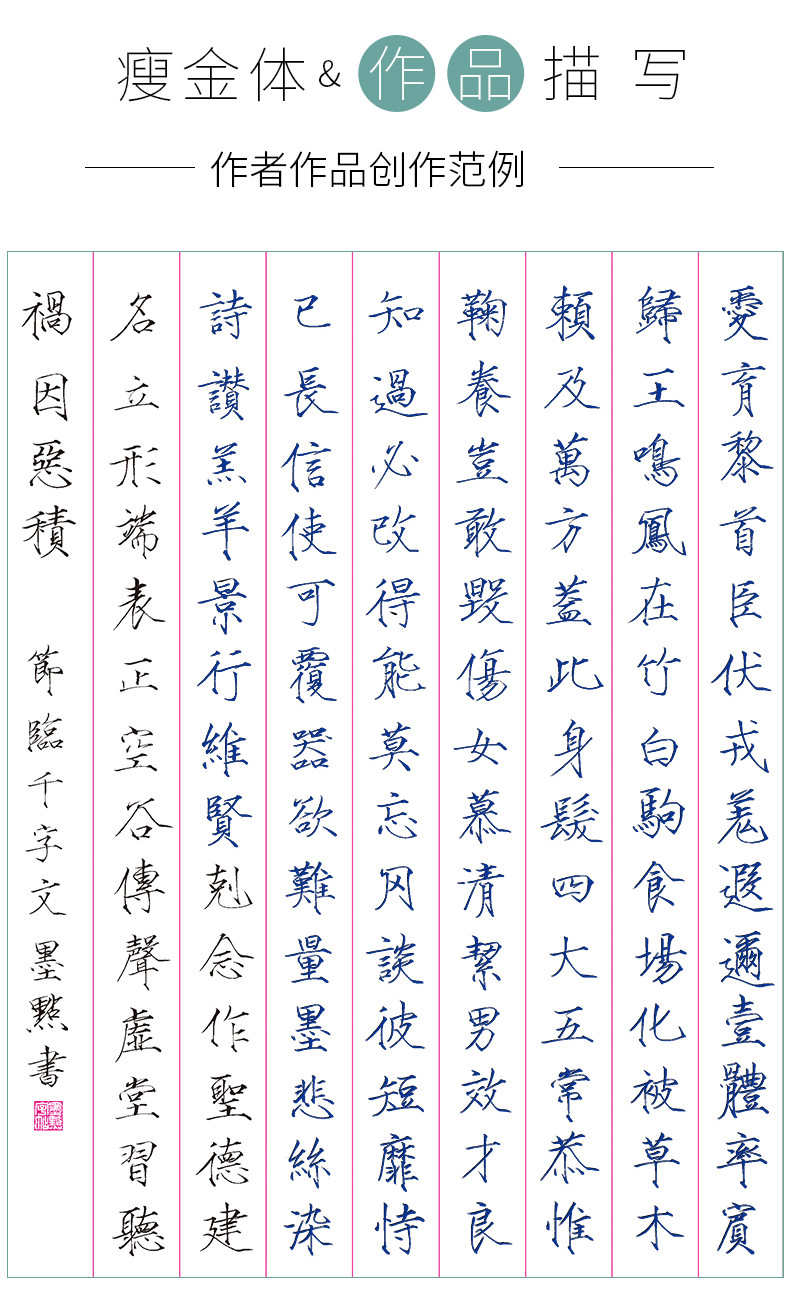 瘦金体&作品描写
作者作品创作范例
愛育黎首臣伏戎羌遐邇壹體率賓
歸王鳴鳳在竹白駒食場化被草木
賴及萬方蓋此身髮四大五常恭惟
鞠養豈敢毀傷女慕清絜男效才良
知過必改得能莫忘罔談彼短靡恃
已長信使可覆器欲難量墨悲絲染
詩讚羔羊景行維賢剋念作聖德建
名立形端表正空谷傳聲虛堂習聽
禍因惡積 節臨千字文墨點書